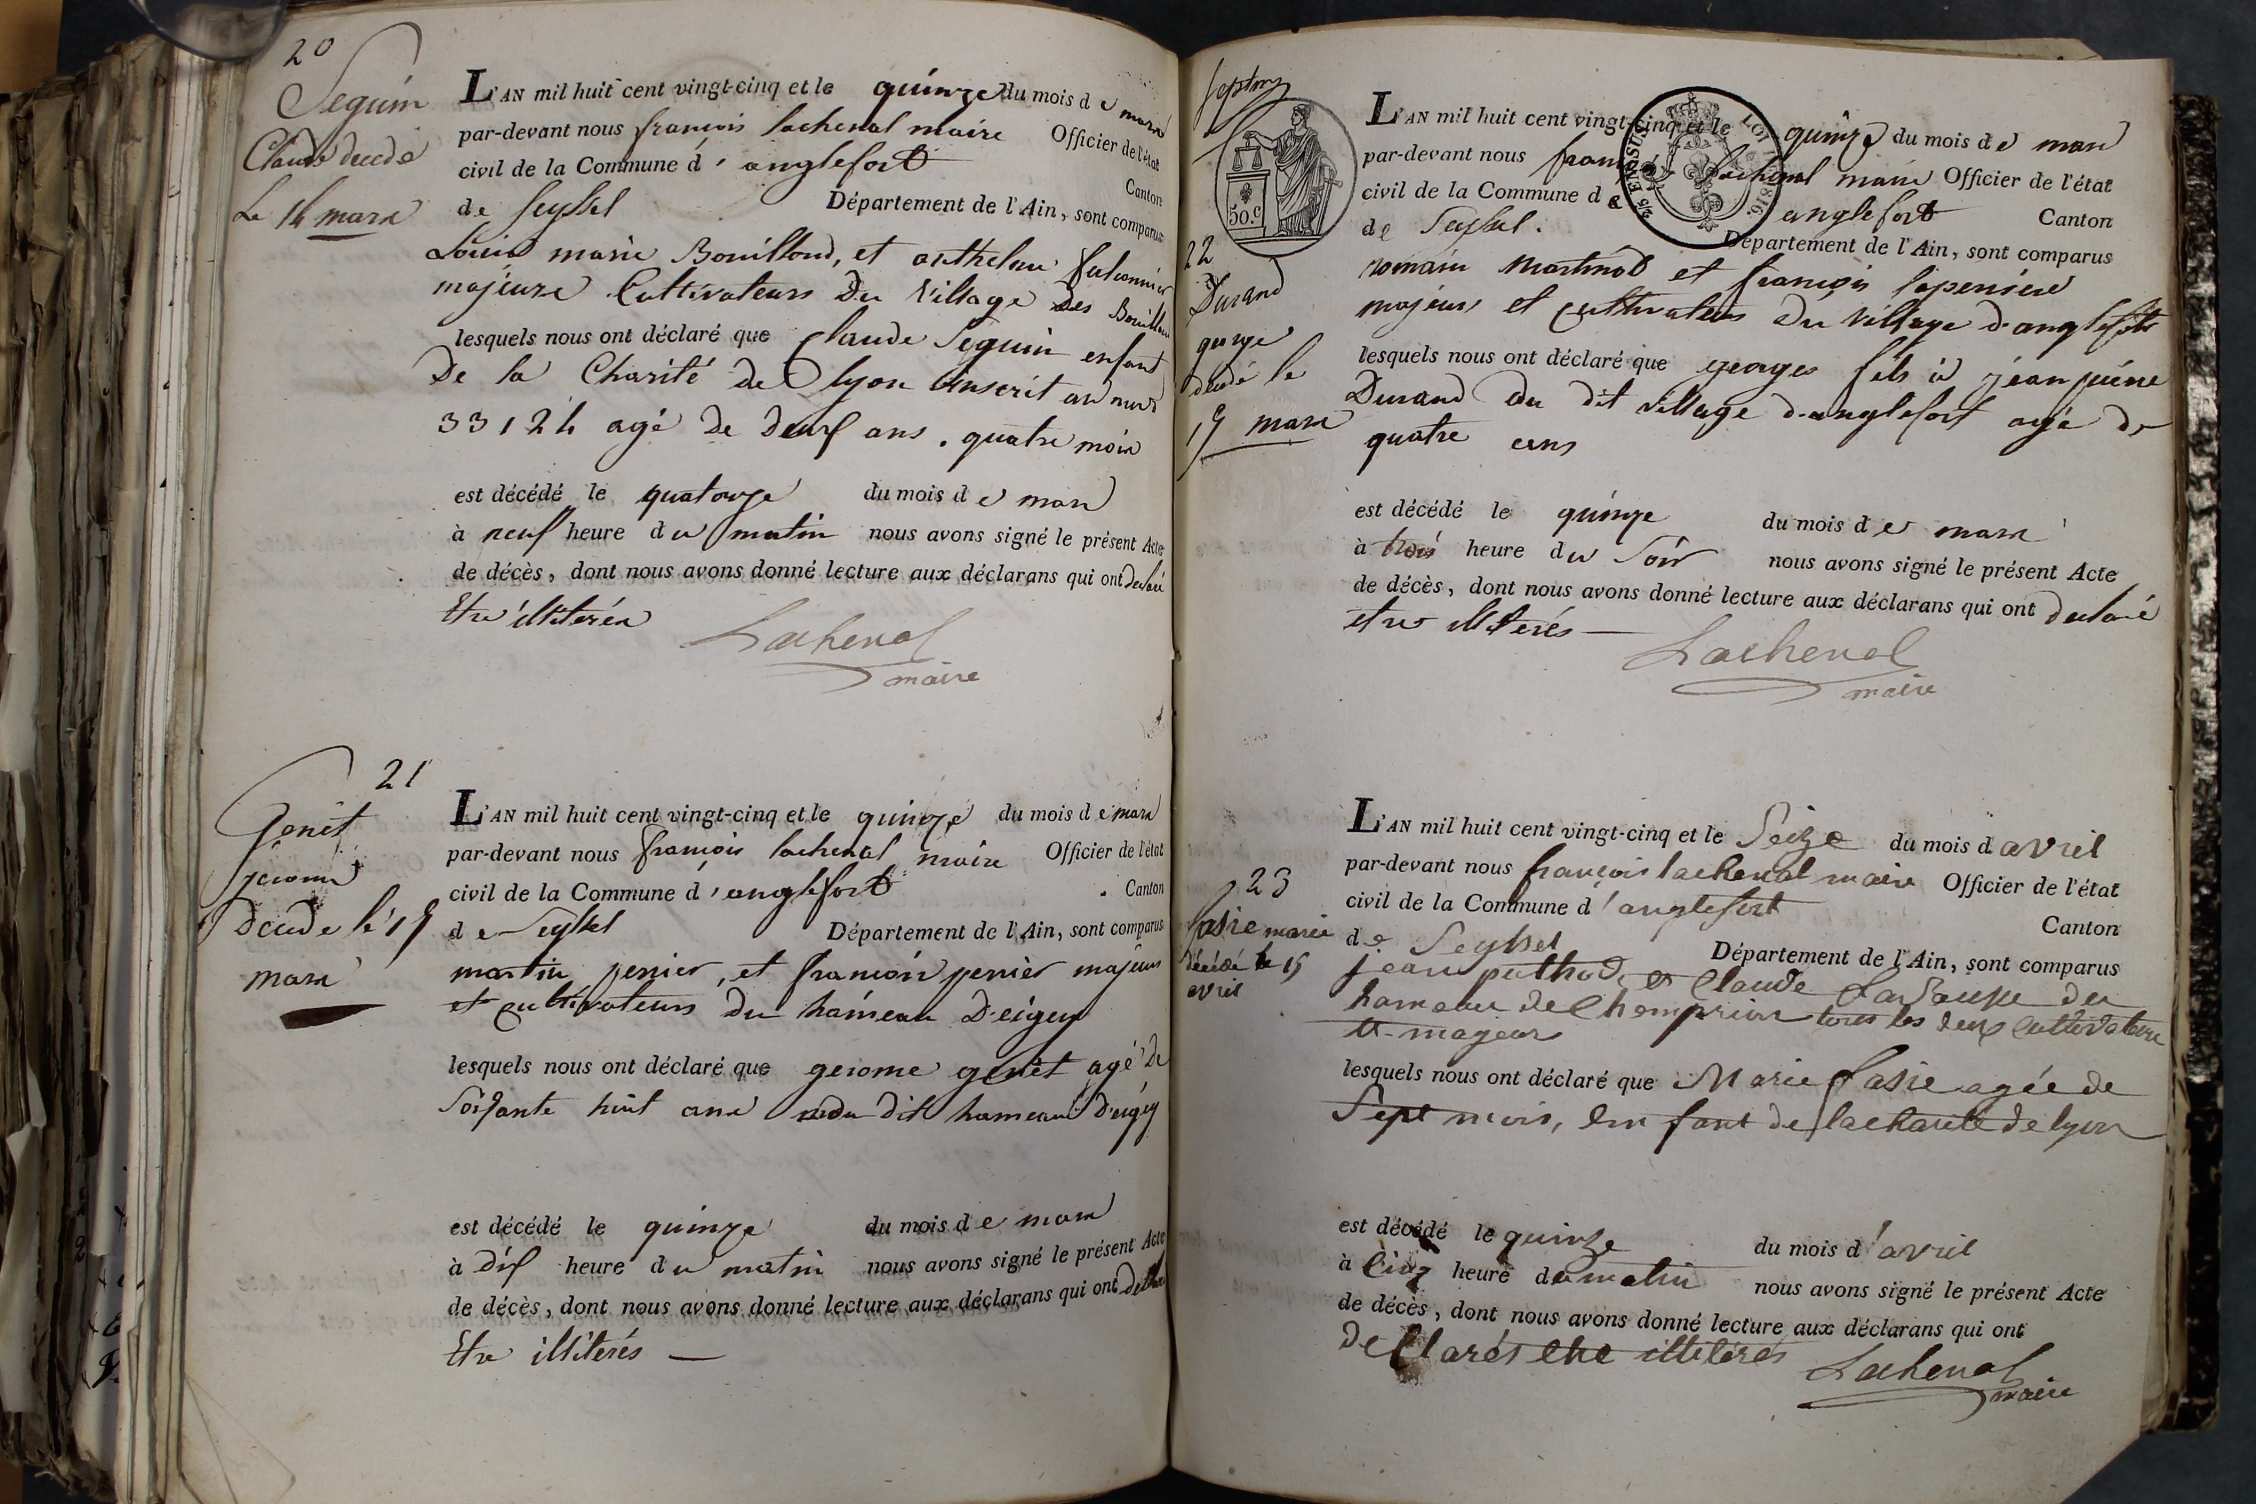 20
Seguin
Claude decede
Le 14 mars
L'AN mil huit cent vingt-cinq et le quinze du mois de mars
par-devant nous françois lachenal maire Officier de l'état
civil de la Commune d'anglefort Canton
de seyssel Département de l'Ain, sont comparus
Louis marie Bouilloud, et anthelme falconnier
majeurs Cultivateurs Du Village Des
lesquels nous ont déclaré que Claude Seguin enfant
De la Charité de lyon inscrit au
33124 agé De deux ans . quatre mois
est décédé le quatorze du mois de mars
à neuf heure du matin nous avons signé le présent Acte
de décès, dont nous avons donné lecture aux déclarans qui ont declaré
Etre illiterés
Lachenal
maire
21
Genet
jerome
Decede le 15
mars
L'AN mil huit cent vingt-cinq et le quinze du mois de mars
par-devant nous françois lachenal maire Officier de l'état
civil de la Commune d'anglefort Canton
de Seyssel Département de l'Ain, sont comparus
martin perrier, et francois perrier majeurs
et cultivateurs Du hameau D'eigey
lesquels nous ont déclaré que gerome genet agé de
Soixante huit ans du Dit hameau D'eigey
est décédé le quinze du mois de mars
à dix heure du matin nous avons signé le présent Acte
de décès, dont nous avons donné lecture aux déclarans qui ont
Etre illiterés —
50.c
22
Durand
george
décédé le
15 mars
L'AN mil huit cent vingt-cinq et le quinze du mois de mars
par-devant nous lachenal maire Officier de l'état
civil de la Commune de anglefort Canton
de Seyssel. Département de l'Ain, sont comparus
romain martinod et françois lapensiere
majeurs et cultivateurs Du Village d'anglefort
lesquels nous ont déclaré que georges fils à jean pierre
Durand Du dit Village d'anglefort agé de
quatre ans
est décédé le quinze du mois de mars
à trois heure du soir nous avons signé le présent Acte
de décès, dont nous avons donné lecture aux déclarans qui ont declaré
etre illiterés —
Lachenal
maire
23
marie
décédé le 15
avril
L'AN mil huit cent vingt-cinq et le Seize du mois d avril
par-devant nous françois lachenal maire Officier de l'état
civil de la Commune d'anglefort Canton
de Seyssel Département de l'Ain, sont comparus
jean puthod, et Claude du
hameau de tous les deux Cultivateurs
et mageurs
lesquels nous ont déclaré que Marie agée de
Sept mois, Enfant de lacharité de lyon
est décédé le quinze du mois d'avril
à Cinq heure du matin nous avons signé le présent Acte
de décès, dont nous avons donné lecture aux déclarans qui ont
declarés etre illiterés
Lachenal
maire